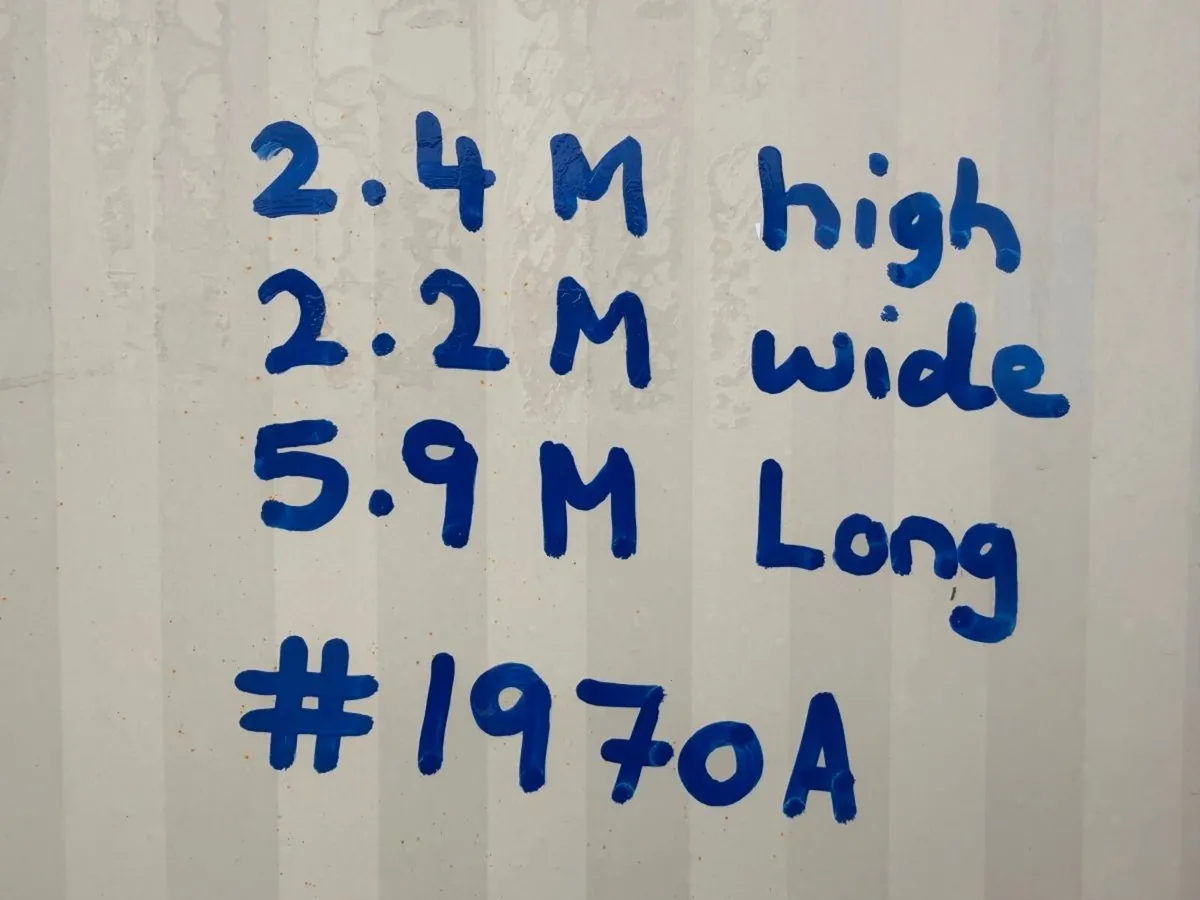 2.4 M high
2.2 M wide
5.9 M Long
#1970A